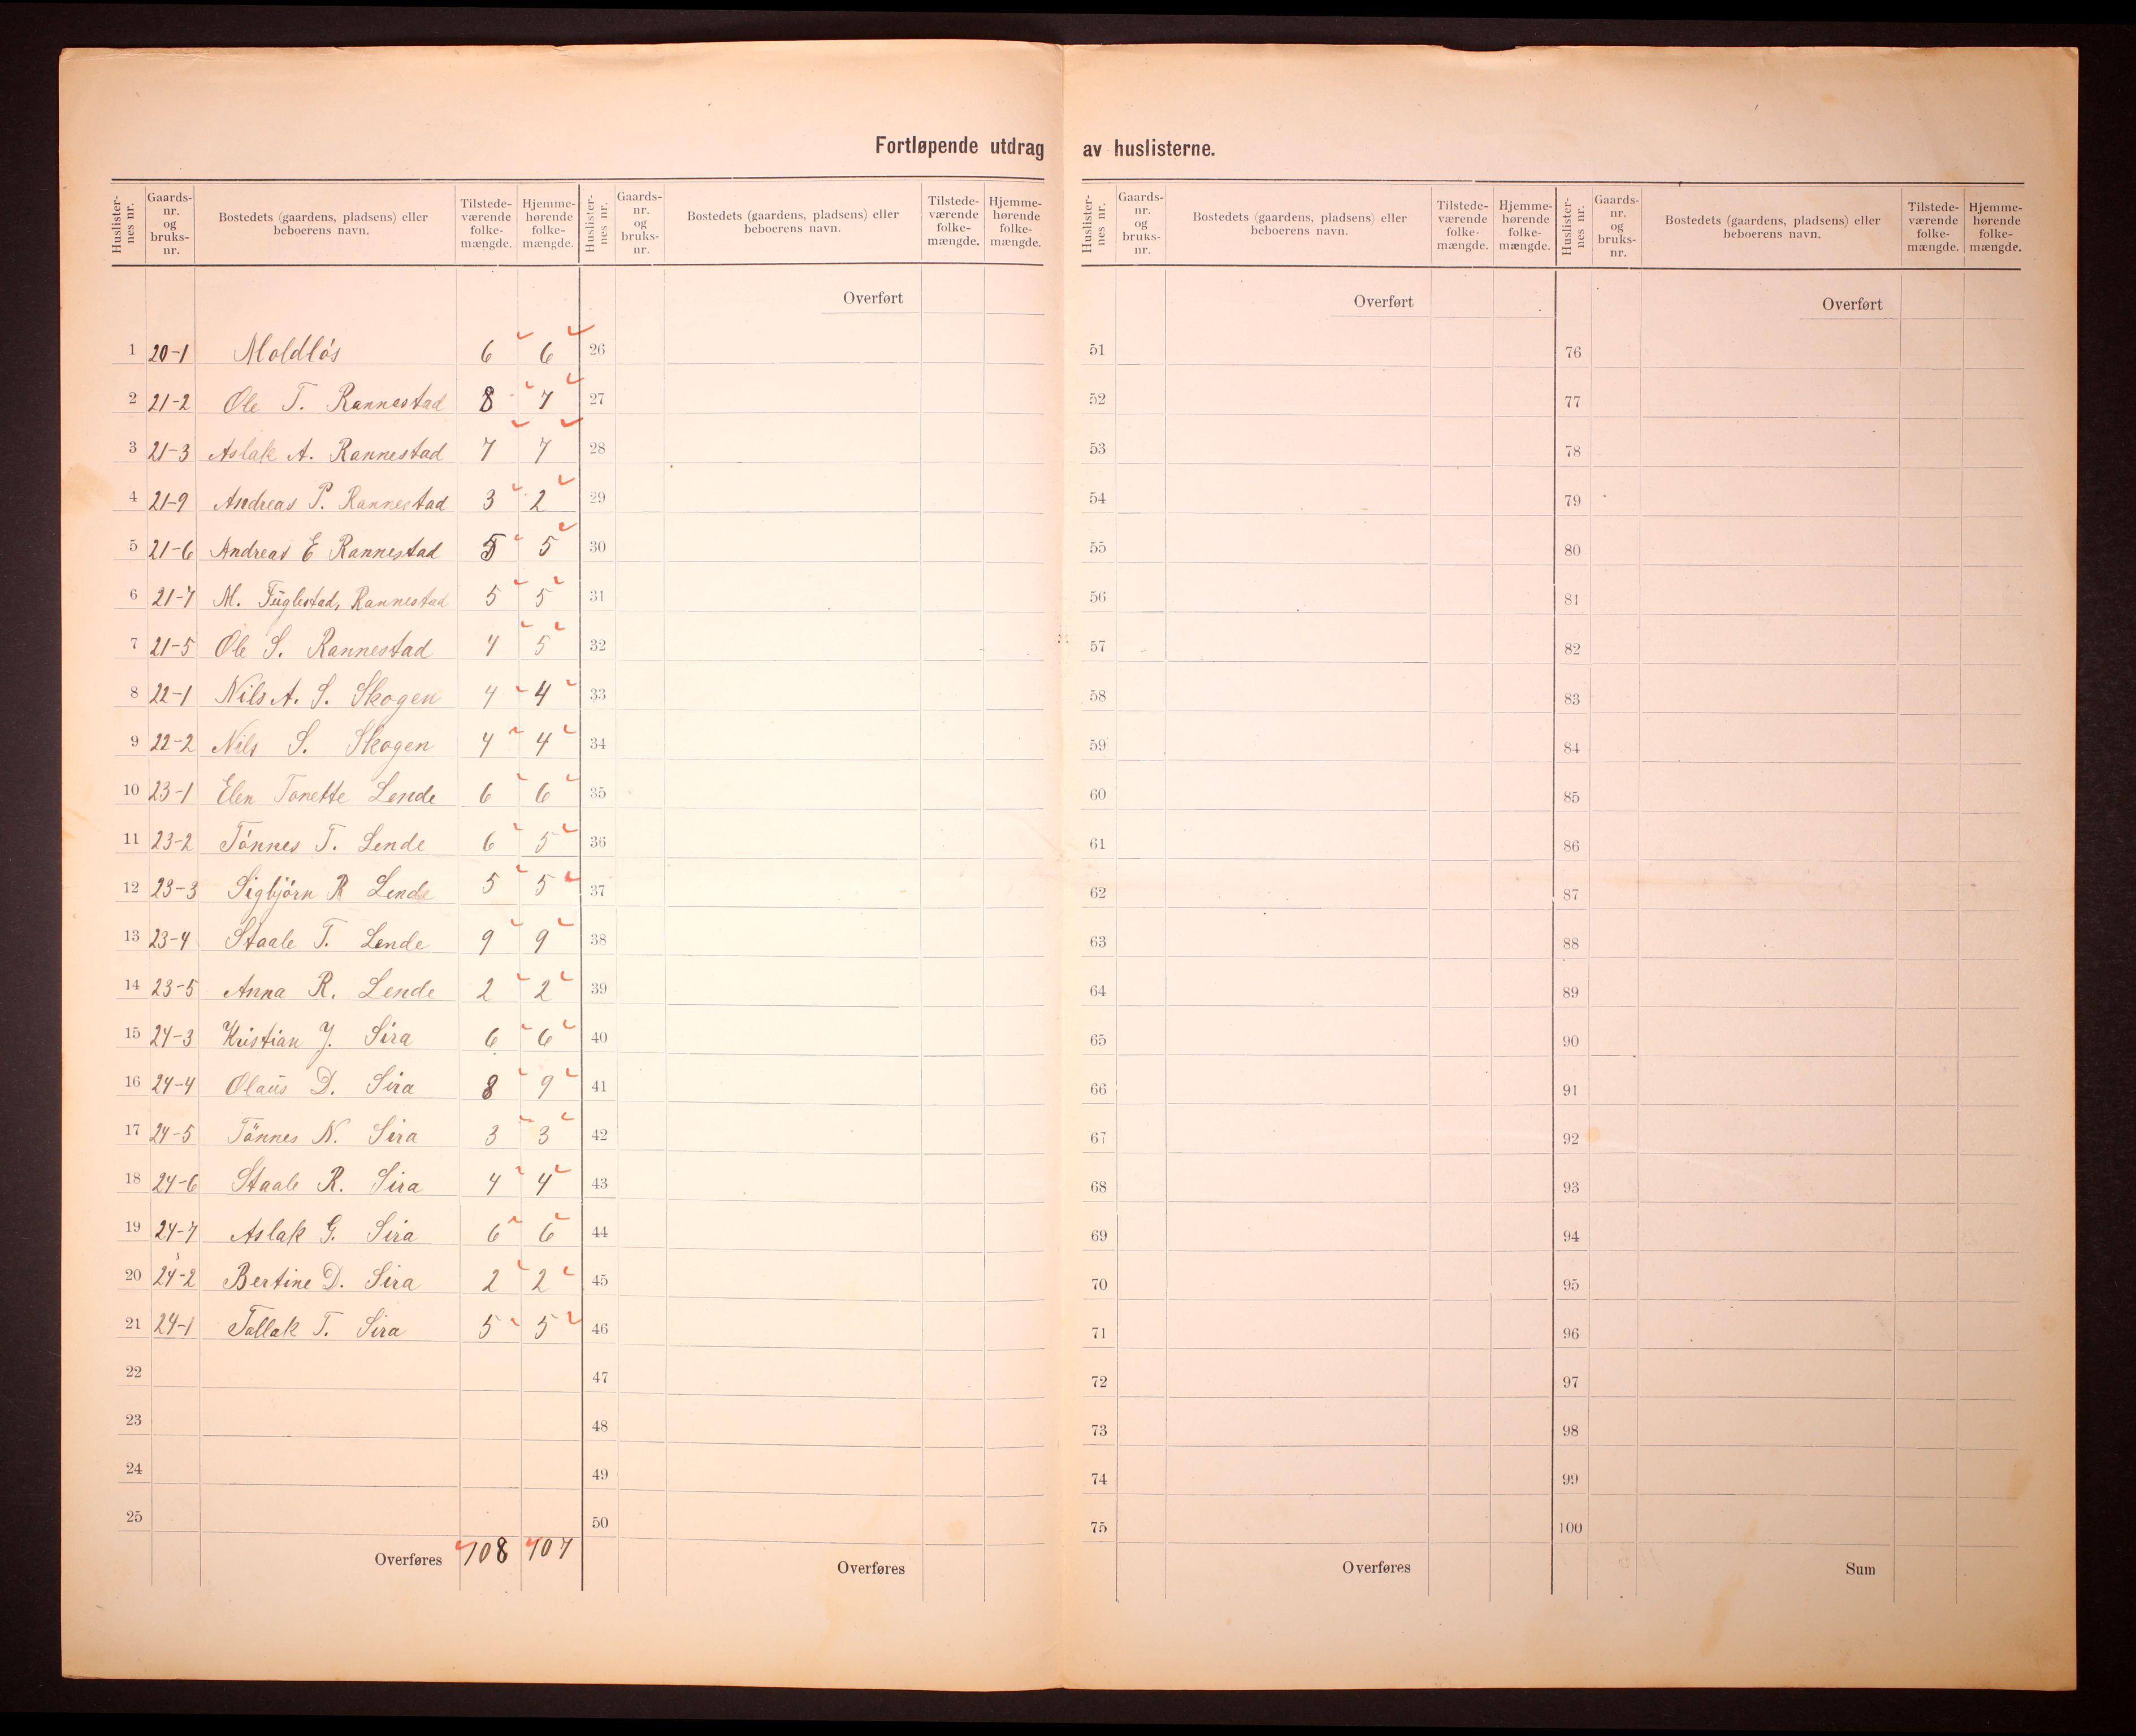 Fortløpende utdrag av huslisterne.
Huslister-nes nr. Gaards-nr. og bruks-nr. Bostedets (gaardens, pladsens) eller beboerens navn. Tilstede-værende folke-mængde. Hjemme-hørende folke-mængde. Huslister-nes nr. Gaards-nr. og bruks-nr. Bostedets (gaardens, pladsens) eller beboerens navn. Tilstede-værende folke-mængde. Hjemme-hørende folke-mængde. Huslister-nes nr. Gaards-nr. og bruks-nr. Bostedets (gaardens, pladsens) eller beboerens navn. Tilstede-værende folke-mængde. Hjemme-hørende folke-mængde. Huslister-nes nr. Gaards-nr. og bruks-nr. Bostedets (gaardens, pladsens) eller beboerens navn. Tilstede-værende folke-mængde. Hjemme-hørende folke-mængde.
Overført Overført Overført
1 20-1 Moldlós 6 6 26 51 76
2 21-2 Ole T. Rannestad 8 7 27 52 77
3 21-3 Aslak A. Rannestad 7 7 28 53 78
4 21-9 Andreas P. Rannestad 3 2 29 54 79
5 21-6 Andreas E Rannestad 5 5 30 55 80
6 21-7 M. Fuglestad, Rannestad 5 5 31 56 81
7 21-5 Ole S. Rannestad 4 5 32 57 82
8 22-1 Nils A. S. Skogen 4 4 33 58 83
9 22-2 Nils S. Skogen 4 4 34 59 84
10 23-1 Elen Tonette Lende 6 6 35 60 85
11 23-2 Tónnes T. Lende 6 5 36 61 86
12 23-3 Sigbjórn R Lende 5 5 37 62 87
13 23-4 Staale T. Lende 9 9 38 63 88
14 23-5 Anna R. Lende 2 2 39 64 89
15 24-3 Kristian J. Sira 6 6 40 65 90
16 24-4 Olaus D. Sira 8 9 41 66 91
17 24-5 Tönnes N. Sira 3 3 42 67 92
18 24-6 Staale R. Sira 4 4 43 68 93
19 24-7 Aslak G. Sira 6 6 44 69 94
20 24-2 Bertine D. Sira 2 2 45 70 95
21 24-1 Tallak T. Sira 5 5 46 71 96
22 47 72 97
23 48 73 98
24 49 74 99
25 50 75 100
Overføres 108 107 Overføres Overføres Sum